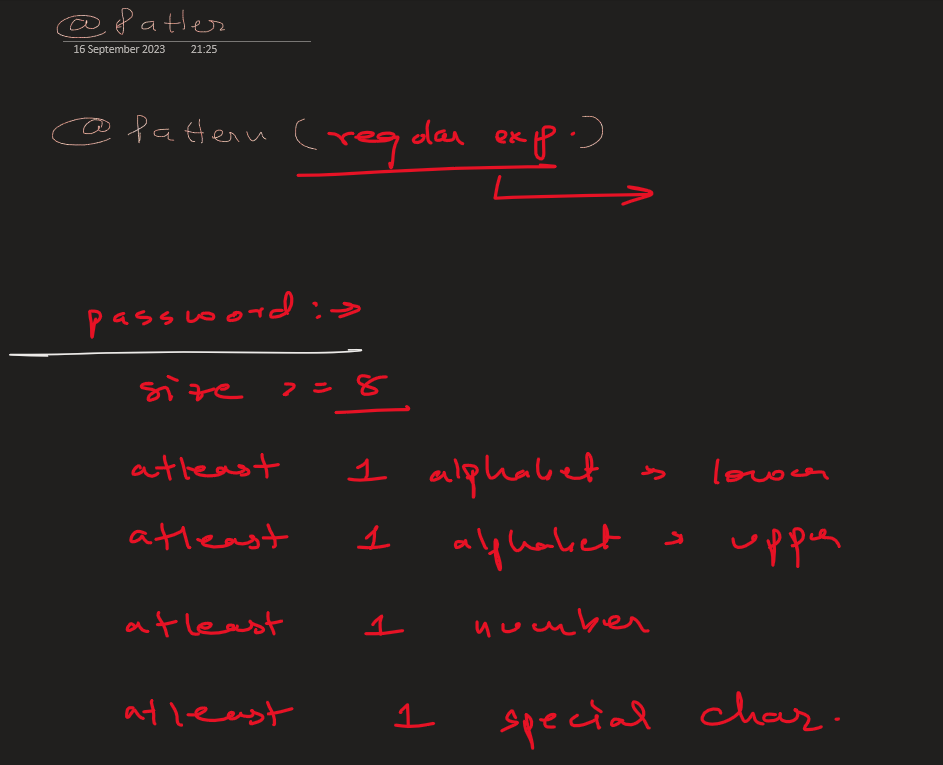 @Patter
16 September 2023 21:25
@Pattern (regular exp.)
password :⇒
size >= 8
atleast 1 alphabet → lower
atleast 1 alphabet → upper
atleast 1 number
atleast 1 special char.